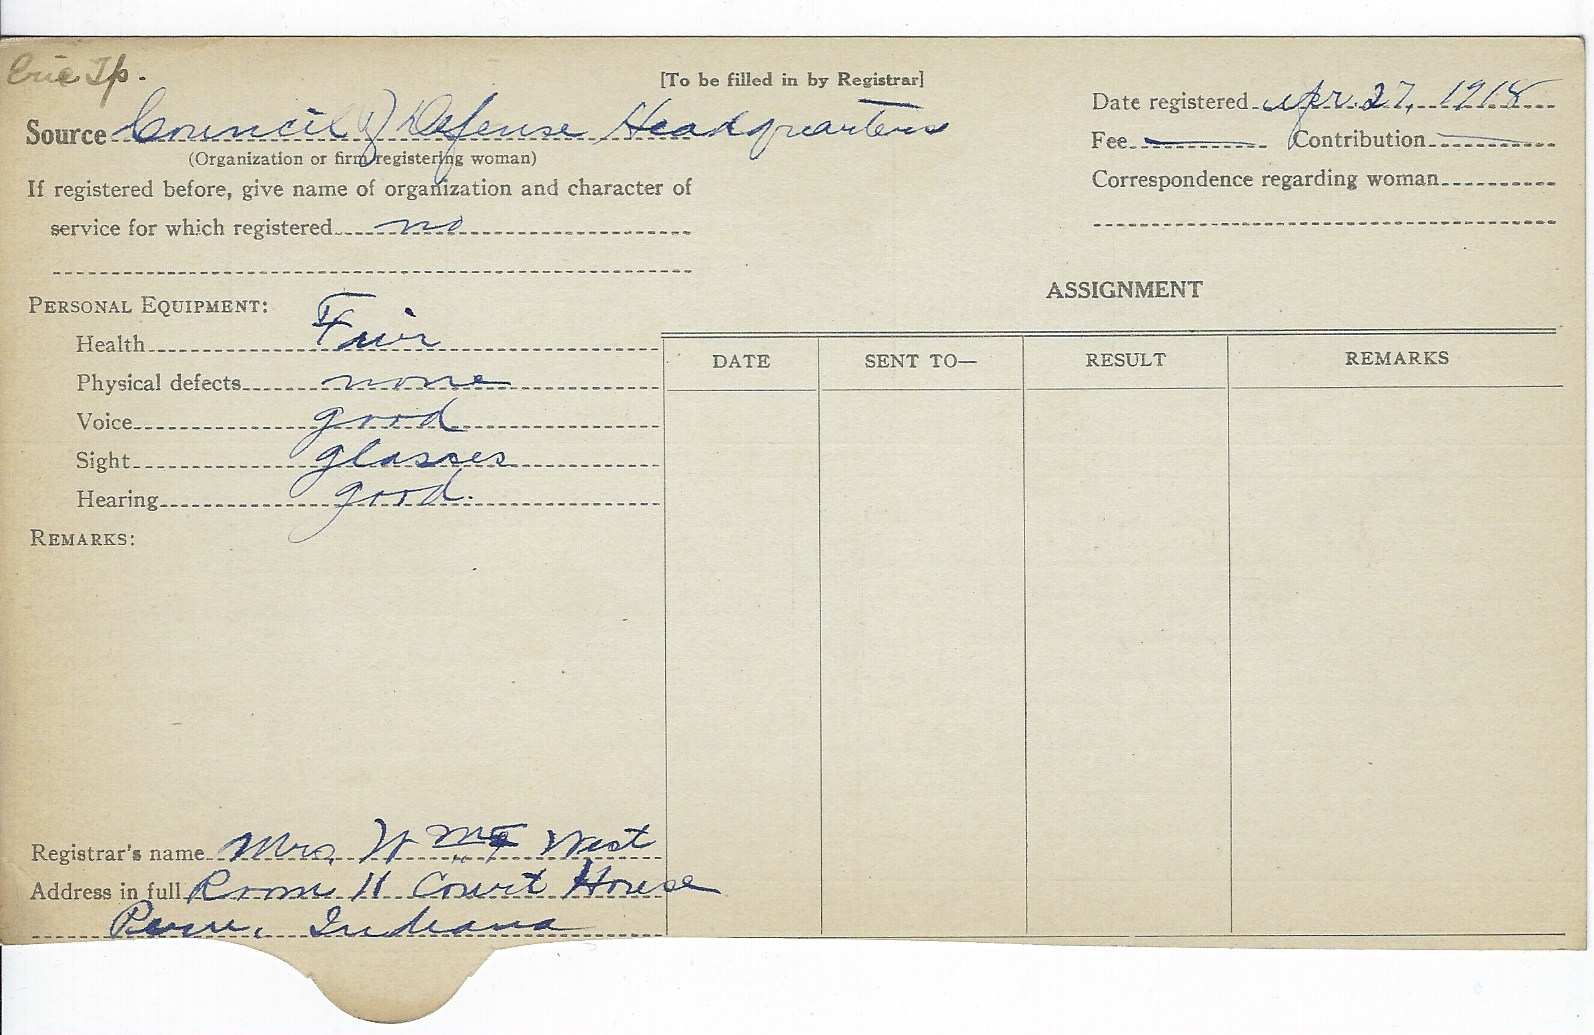 Erie Tp.
[To be filled in by Registrar]
Date registered Apr. 27, 1918
Source Council of Defense Headquarters
(Organization or firm registering woman)
Fee — Contribution —
If registered before, give name of organization and character of
Correspondence regarding woman
service for which registered no
ASSIGNMENT
PERSONAL EQUIPMENT:
Health Fair
Physical defects none
Voice good
Sight glasses
Hearing good.
REMARKS:
DATE SENT TO— RESULT REMARKS
Registrar's name Mrs. W West
Address in full Room 11 Court House
Peru, Indiana